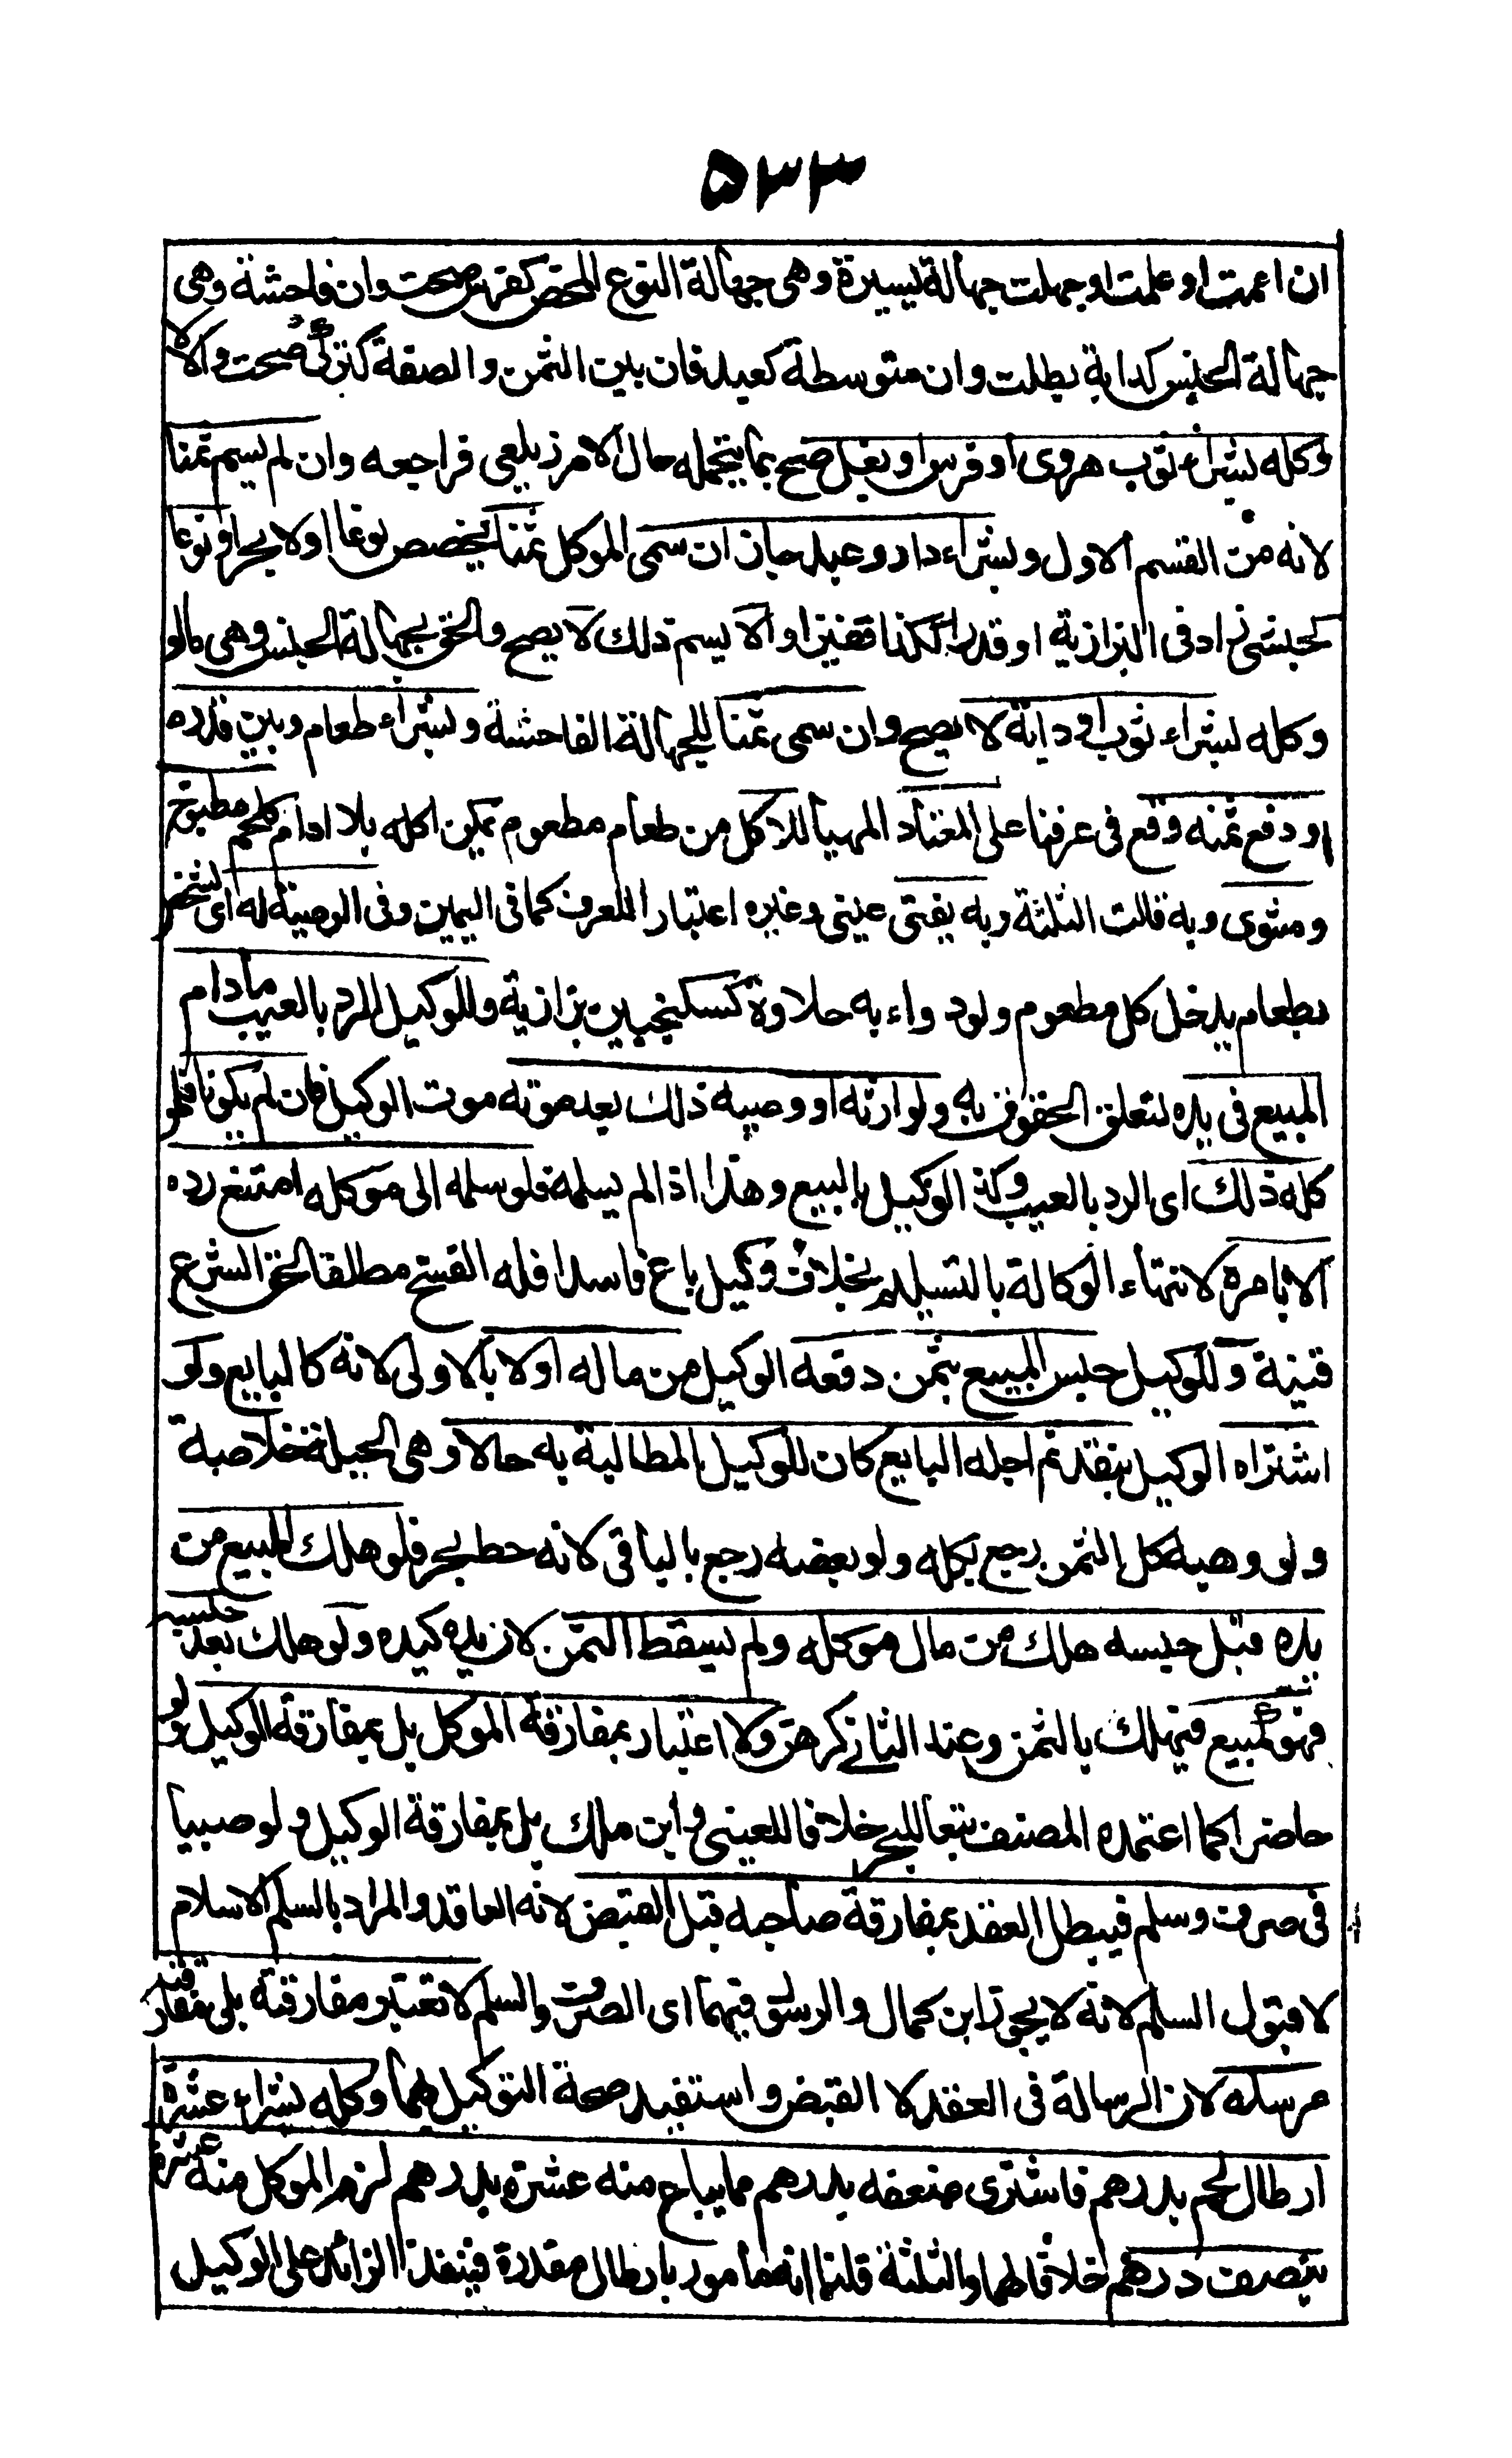 ٥٣٣
ان اعمت او علمت او جهلت جهالة يسيرة وهى جهالة النوع المحض كفرس صحت وان فاحشة وهى
جهالة الجنس كدابة بطلت وان متوسطة كعبد فان بين الثمن والصفة كتركى صحت والا لا
وكله بشراء ثوب هروى او فرس او بغل صح بما يتحمله حال الآمر زيلعى فراجعه وان لم يسم ثمنا
لانه من القسم الاول وبشراء دار وعبد جاز ان سمى الموكل ثمنا يخصص نوعا اولا بحر او نوعا
كحبشى زاد فى البزازية او قدرا ككذا قفيزا والا يسم ذلك لا يصح والحق بجهالة الجنس وهى مالو
وكله بشراء ثوب او دابة لا يصح وان سمى ثمنا للجهالة الفاحشة وبشراء طعام وبين قدره
او دفع ثمنه وقع فى عرفنا على المعتاد المهيأ للاكل من طعام مطعوم يمكن اكله بلا ادام كلحم مطبوخ
ومشوى وبه قالت الثلثة وبه يفتى عينى وغيره اعتبارا للعرف كما فى اليمين وفى الوصية له اى لشخص
بطعام يدخل كل مطعوم ولو دواء به حلاوة كسكنجبين بزازية وللوكيل الرد بالعيب مادام
المبيع فى يده لتعلق الحقوق به ولوارثه او وصيه ذلك بعد موته موت الوكيل فان لم يكونا فلمو
كله ذلك اى الرد بالعيب وكذا الوكيل بالبيع وهذا اذا لم يسلمه فلو سلمه الى موكله امتنع رده
الا بامره لانتهاء الوكالة بالتسليم بخلاف وكيل باع فاسدا فله الفسخ مطلقا لحق الشرع
قنية وللوكيل حبس المبيع بثمن دفعه الوكيل من ماله اولا بالاولى لانه كالبايع ولو
اشتراه الوكيل بنقد ثم اجله البايع كان للوكيل المطالبة به حالا وهى الحيلة خلاصة
ولو وهبه كل الثمن رجع بكله ولو بعضه رجع بالباقى لانه حط بحر فلو هلك المبيع من
يده قبل حبسه هلك من مال موكله ولم يسقط الثمن لان يده كيده ولو هلك بعد حبسه
فهو كمبيع فيهلك بالثمن وعند الثانى كرهن ولا اعتبار بمفارقة الموكل بل بمفارقة الوكيل ولو
حاضرا كما اعتمده المصنف تبعا للبحر خلافا للعينى وابن ملك بل بمفارقة الوكيل ولو صبيا
فى صرف وسلم فيبطل العقد بمفارقة صاحبه قبل القبض لانه العاقد والمراد بالسلم الاسلام
لا قبول السلم لانه لا يجوز ابن كمال والرسول فيهما اى الصرف والسلم لا تعتبر مفارقته بل مفارقة
مرسله لان الرسالة فى العقد لا القبض واستفيد صحة التوكيل بهما وكله بشراء عشرة
ارطال لحم بدرهم فاشترى ضعفه بدرهم مما يباع منه عشرة بدرهم لزم الموكل منه عشرة
بنصف درهم خلافا لهما والثلثة قلنا انه مأمور بارطال مقدرة فينفذ الزائد على الوكيل